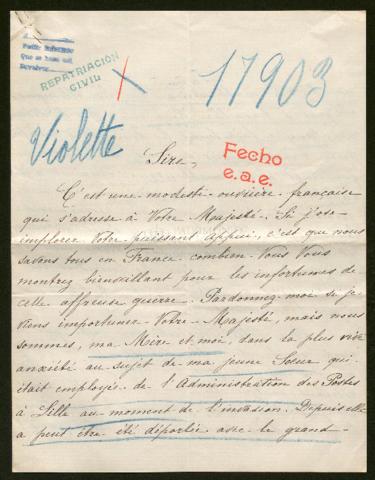 Pedir Informes
Que se haga asi
REPATRIACIÓN
CIVIL
17903
Violette
Sire,
Fecho
e.a.e.
C'est une modeste ouvrière française
qui s'adresse à Votre Majesté. Si j'ose
implorer Votre puissant appui, c'est que nous
savons tous en France combien Vous Vous
montrez bienveillant pour les infortunes de
cette affreuse guerre. Pardonnez-moi si je
viens importuner Votre Majesté, mais nous
sommes, ma Mère et moi, dans la plus vive
anxiété au sujet de ma jeune Sœur qui
était employée de l'Administration des Postes
à Lille au moment de l'invasion. Depuis elle
a peut être été déportée avec le grand